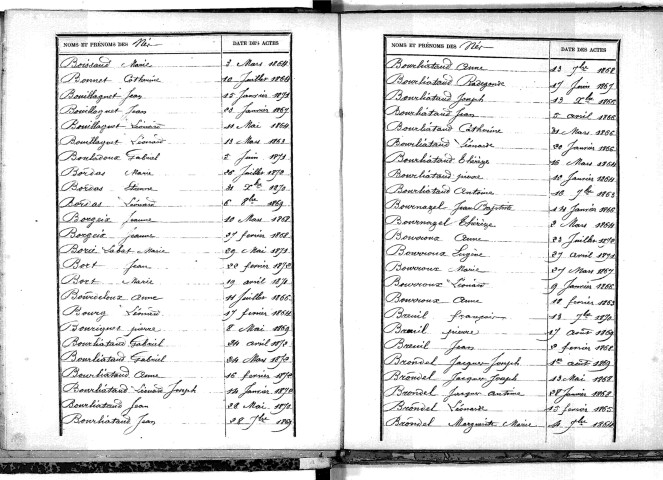 NOMS ET PRÉNOMS DES Nés DATE DES ACTES
Boisseaud Marie 3 Mars 1864
Bonnet Catherine 10 Juillet 1864
Bouillaguet Jean 15 Janvier 1871
Bouillaguet Jean 21 Janvier 1867
Bouillaguet Léonard 11 Mai 1864
Bouillaguet Léonard 13 Mars 1863
Gabriel 2 Juin 1873
Bordas Marie 26 Juillet 1870
Bordas Etienne 31 Xbre 1870
Bordas Léonard 6 8bre 1869
Borgeix Jeanne 10 Mars 1868
Borgeix Jeanne 27 fevrier 1868
Borie Labat Marie 29 Mai 1871
Bort Jean 22 fevrier 1872
Bort Marie 19 avril 1871
Bourdeloux Anne 11 Juillet 1866
Bourg Léonard 17 fevrier 1864
pierre 2 Mai 1869
Bourliataud Gabriel 24 avril 1870
Bourliataud Gabriel 24 Mars 1870
Bourliataud Anne 16 fevrier 1870
Bourliataud Léonard Joseph 14 Janvier 1870
Bourliataud Jean 28 Mai 1870
Bourliataud Jean 28 7bre 1869
NOMS ET PRÉNOMS DES Nés DATE DES ACTES
Bourliataud Anne 13 9bre 1868
Bourliataud Radegonde 17 Juin 1867
Bourliataud Joseph 13 Xbre 1866
Bourliataud Jean 5 avril 1866
Bourliataud Catherine 31 Mars 1866
Bourliataud Léonarde 20 Janvier 1865
Bourliataud Thérèze 16 Mars 1864
Bourliataud pierre 18 Janvier 1864
Bourliataud Antoine 18 9bre 1863
Bournazel Jean Baptiste 14 Janvier 1868
Bournazel Thérèze 2 Mars 1864
Bouvroux Anne 23 Juillet 1872
Bouvroux Eugène 27 avril 1871
Bouvroux Marie 27 Mars 1867
Bouvroux Léonard 19 Janvier 1866
Bouvroux Anne 10 fevrier 1863
Breuil françois 13 9bre 1870
Breuil pierre 17 août 1869
Breuil Jean 2 fevrier 1868
Brondel Jacques Joseph 1er août 1869
Brondel Jacques Joseph 13 Mai 1868
Brondel Jacques Antoine 28 Janvier 1868
Brondel Léonarde 15 fevrier 1865
Brondel Marguerite Marie 4 9bre 1864